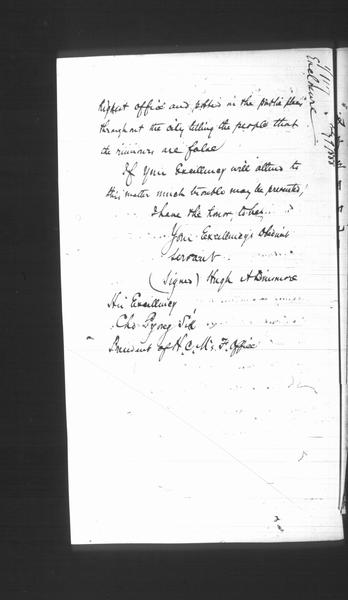 highest office and posted in the public places
throughout the city telling the people that
the rumours are false
If your Excellency will attend to
this matter much trouble may be prevented,
I have the honor to be
Your Excellency's Obedient
servant
(Signed) Hugh A Dinsmore
His Excellency
Cho Pyong Sik
President of H. C. M's F. Office
Enclosure
1888